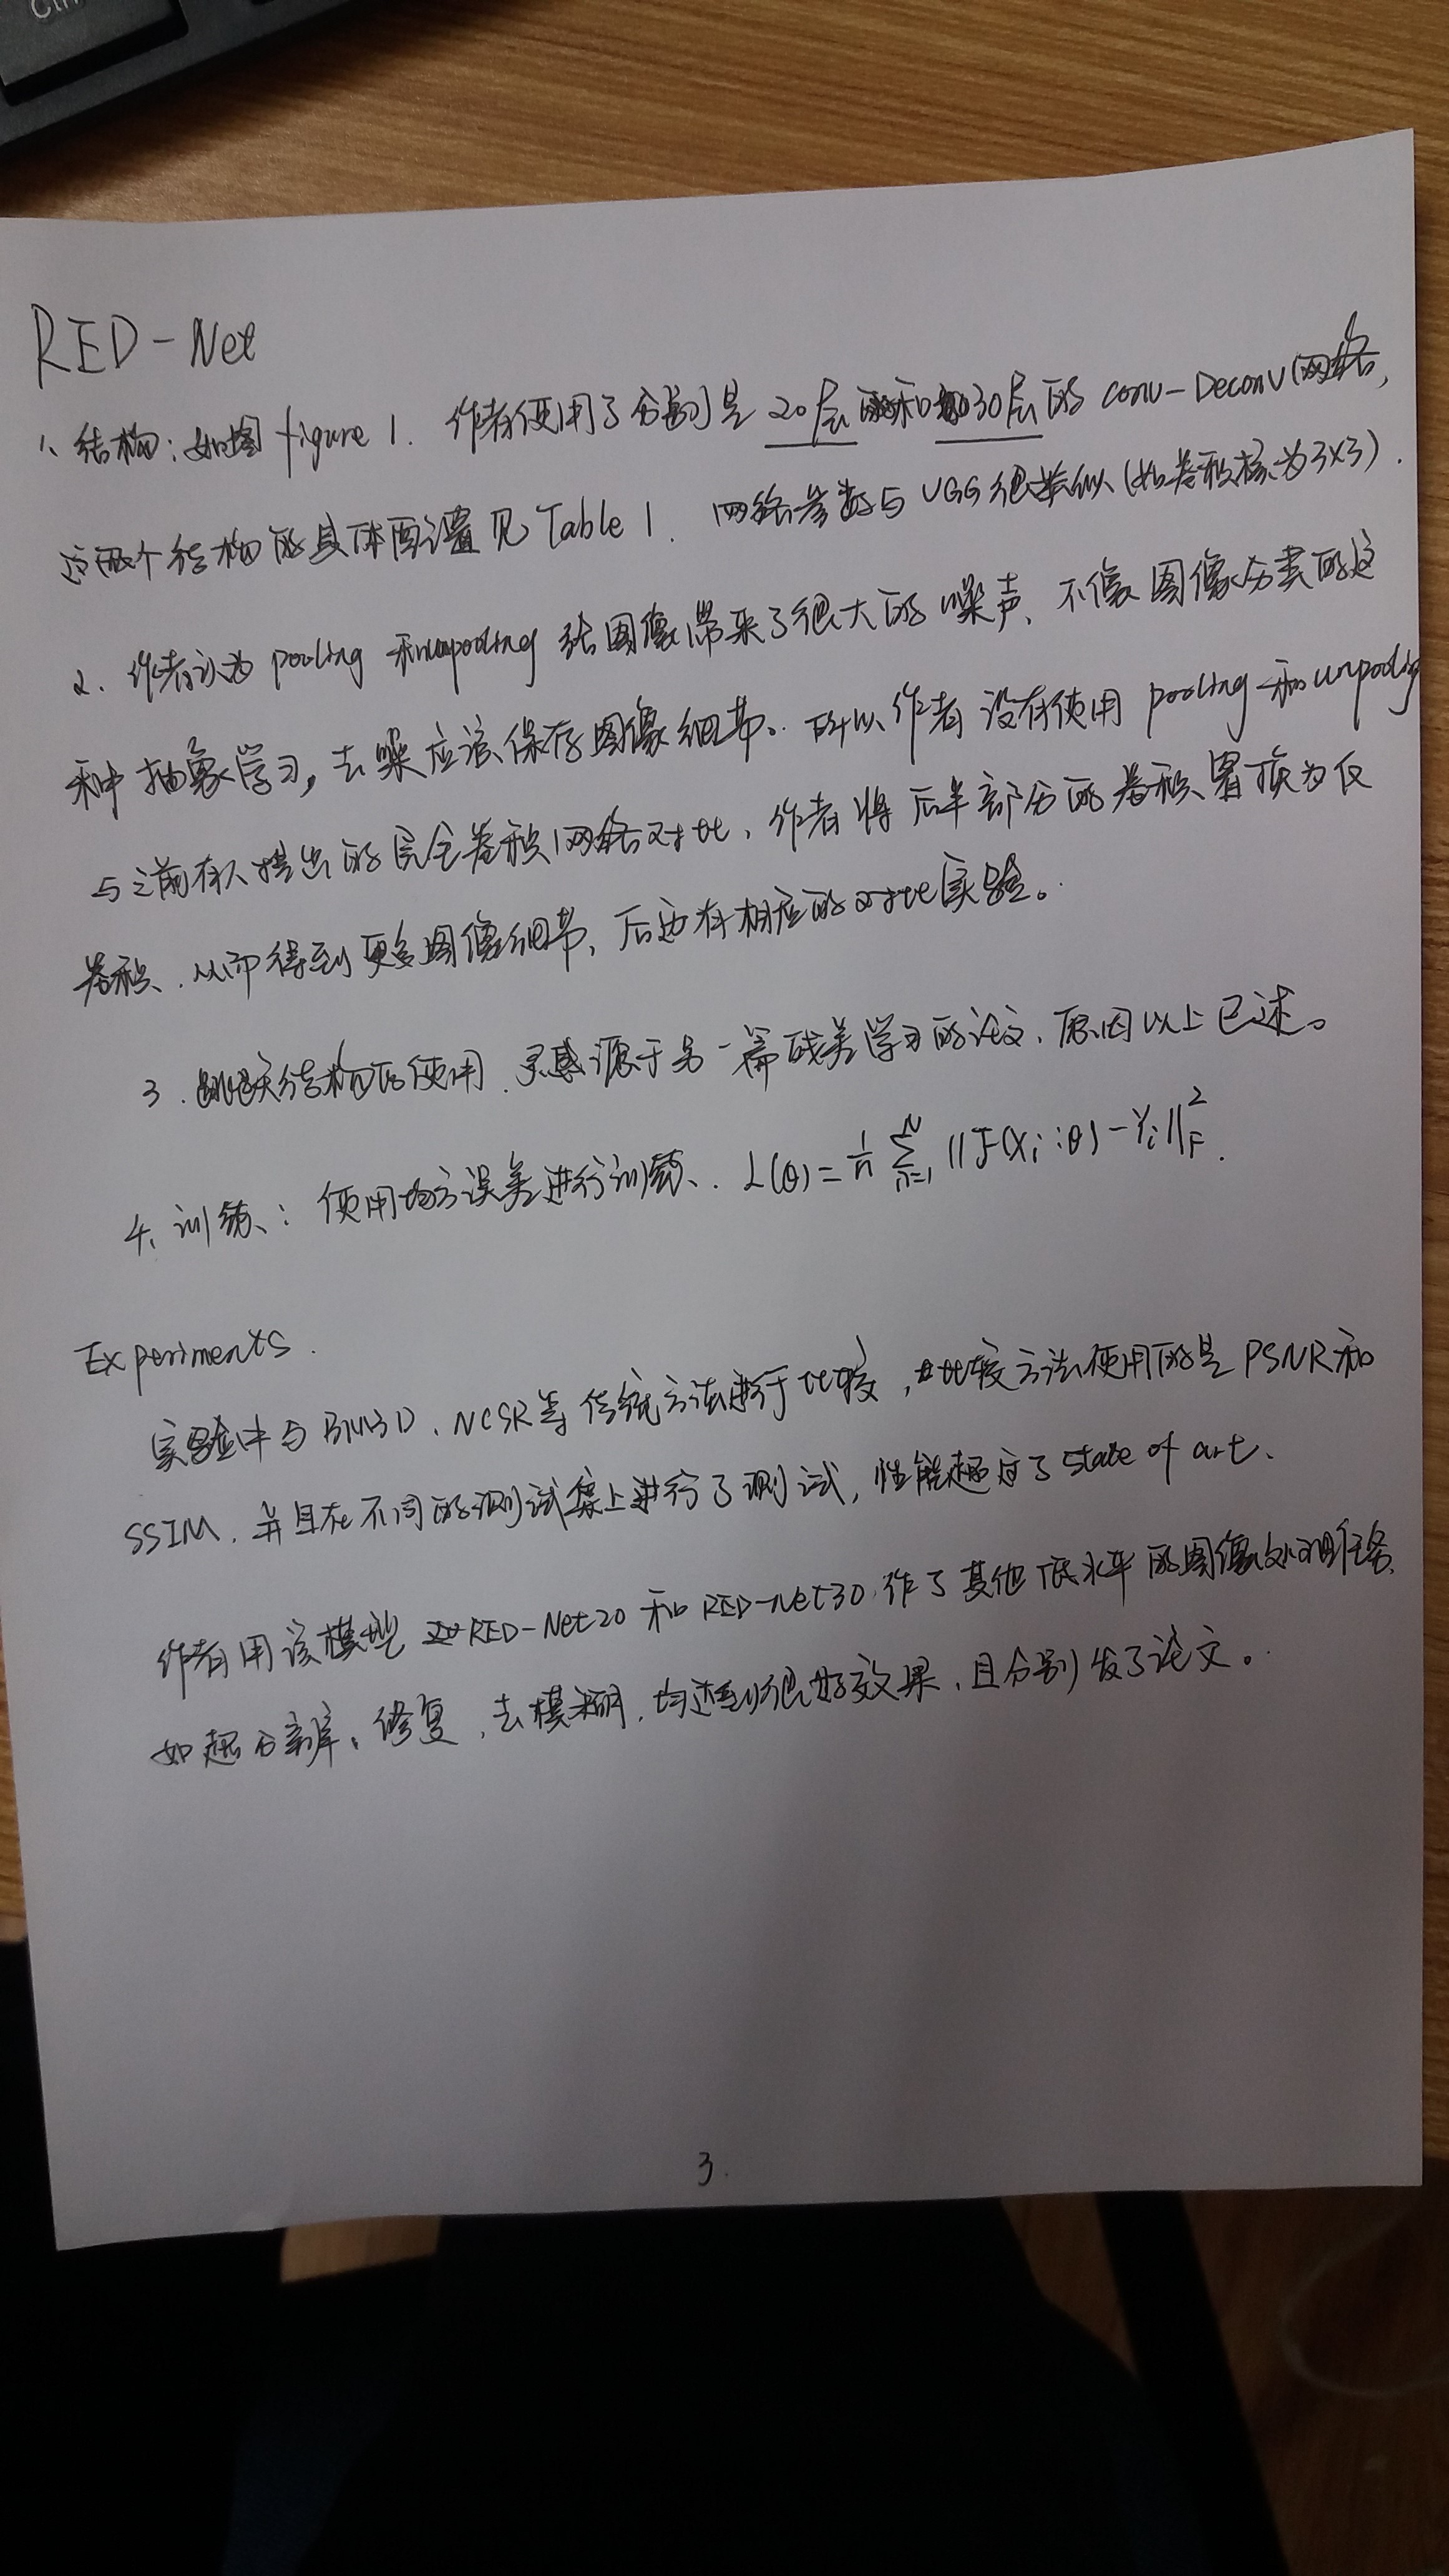 Ctrl
RED-Net
1、结构：如图 figure 1. 作者使用了分别是 20层和30层的 conv-Deconv网络，
这两个结构的具体配置见 Table 1. 网络参数与 VGG 很类似（如卷积核为3×3）.
2、作者认为 pooling 和unpooling 给图像带来了很大的噪声、不像图像分类的这
种抽象学习，去噪应该保存图像细节.. 所以作者没有使用 pooling 和 unpooling
与之前有人提出的完全卷积网络对比、作者将后半部分的卷积置换为反
卷积、从而得到更多图像细节、后边有相应的对比实验。
3. 跳跃结构的使用. 灵感源于另一篇残差学习的论文、原因以上已述。
4、训练、: 使用均方误差进行训练、. L(θ) = 1/n ∑ n=1 N ||F(Xi;θ) - Yi||²F.
Experiments.
实验中与 BM3D、NCSR等传统方法进行比较，比较方法使用的是 PSNR 和
SSIM. 并且在不同的测试集上进行了测试，性能超过了 state of art、
作者用该模型 RED-Net20 和 RED-Net30 作了其他低水平的图像处理任务、
如超分辨率、修复、去模糊、均达到很好效果、且分别发了论文。
3.